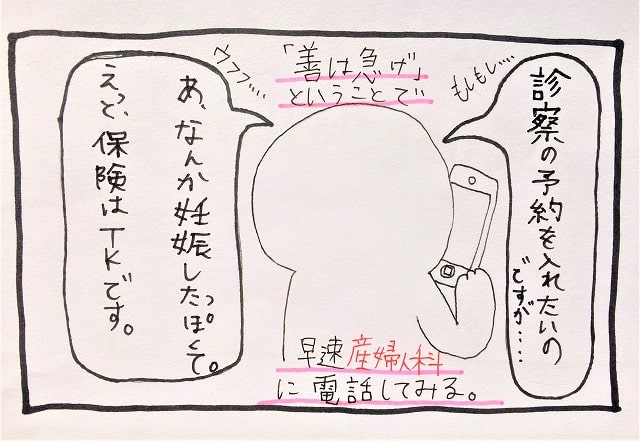 「善は急げ」
ということで
もしもし....
診察の予約を入れたいの
ですが....
ウフフ....
あ、なんか妊娠したっぽくて。
えっと、保険はTKです。
早速産婦人科
に電話してみる。